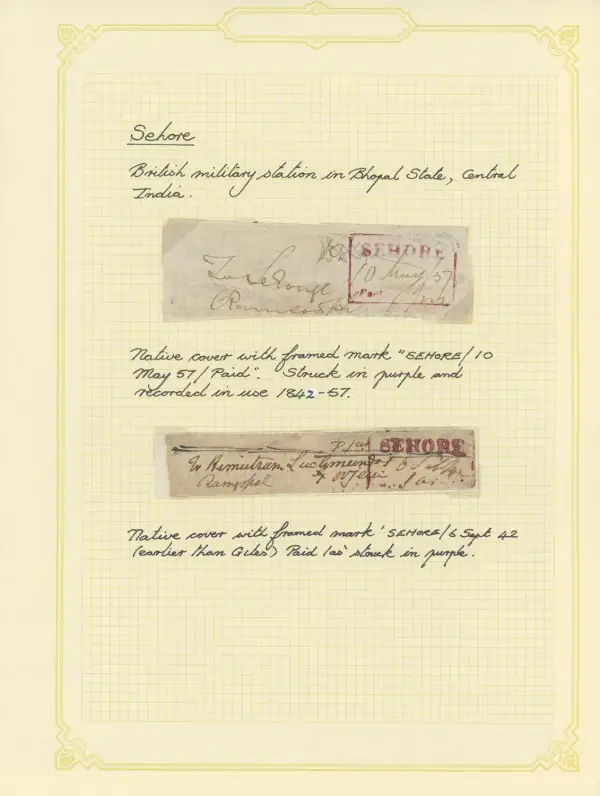 Sehore
British military station in Bhopal State, Central
India.
SEHORE
10 May 57
To
Native cover with framed mark "SEHORE/10
May 57/Paid". Struck in purple and
recorded in use 1842-57.
SEHORE
To Luchmeend
Rampshal
Native cover with framed mark 'SEHORE/6 Sept 42
(earlier than Giles) Paid 1as' struck in purple.